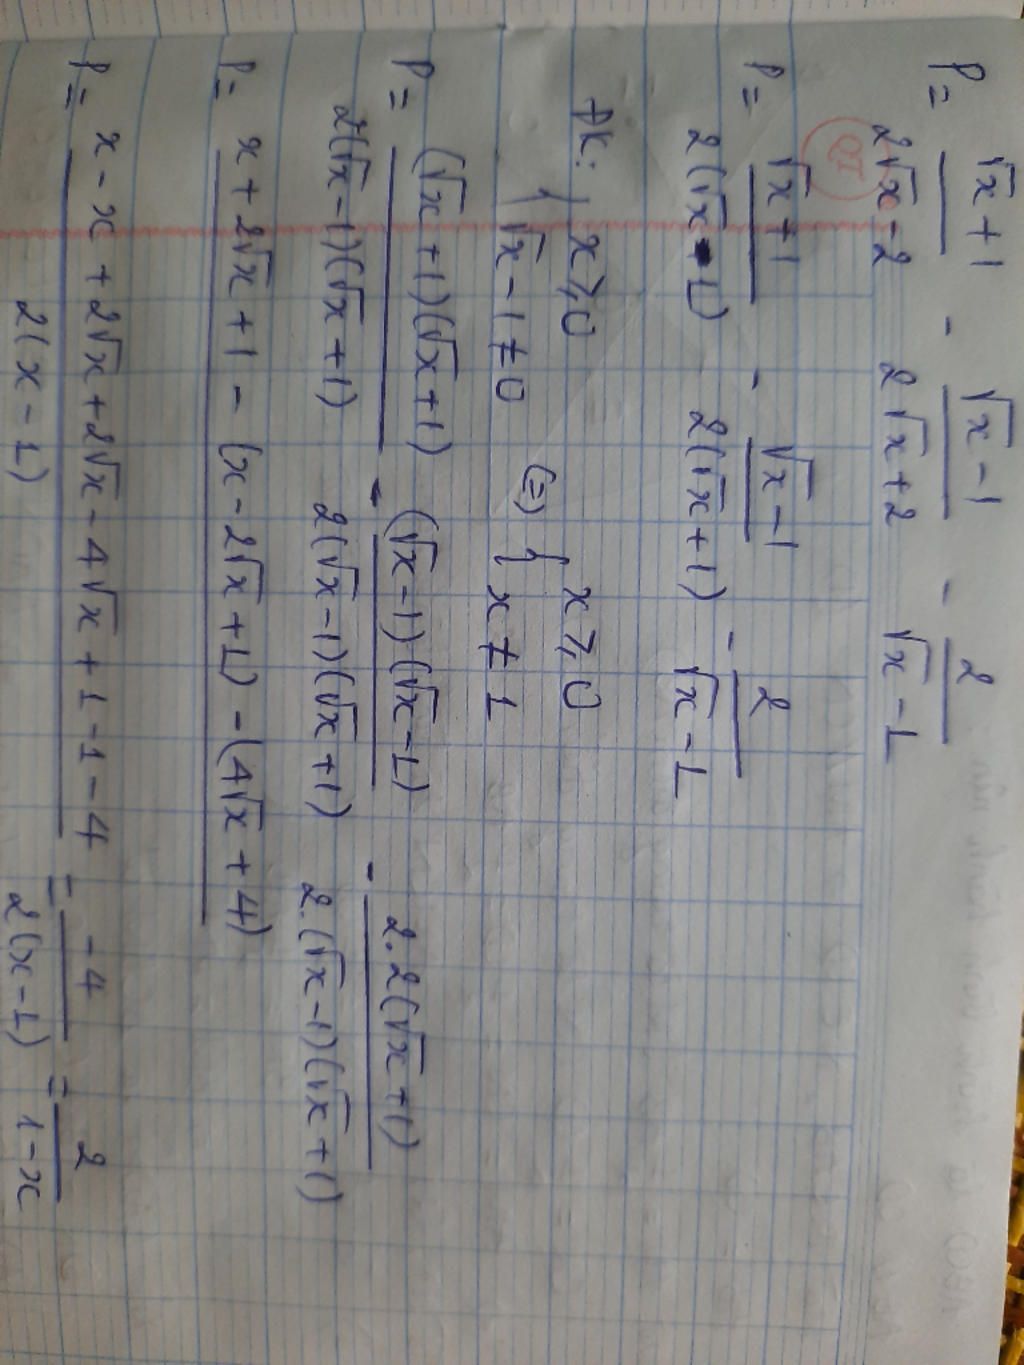 P = (√x + 1)/(2√x - 2) - (√x - 1)/(2√x + 2) - 2/(√x - 1)
P = (√x + 1)/(2(√x - 1)) - (√x - 1)/(2(√x + 1)) - 2/(√x - 1)
ĐK: { x ⩾ 0 ; √x - 1 ≠ 0 (=) { x ⩾ 0 ; x ≠ 1
P = ((√x + 1)(√x + 1))/(2(√x - 1)(√x + 1)) - ((√x - 1)(√x - 1))/(2(√x - 1)(√x + 1)) - (2.2(√x + 1))/(2.(√x - 1)(√x + 1))
P = x + 2√x + 1 - (x - 2√x + 1) - (4√x + 4)
P = (x - x + 2√x + 2√x - 4√x + 1 - 1 - 4)/(2(x - 1)) = (-4)/(2(x - 1)) = 2/(1 - x)